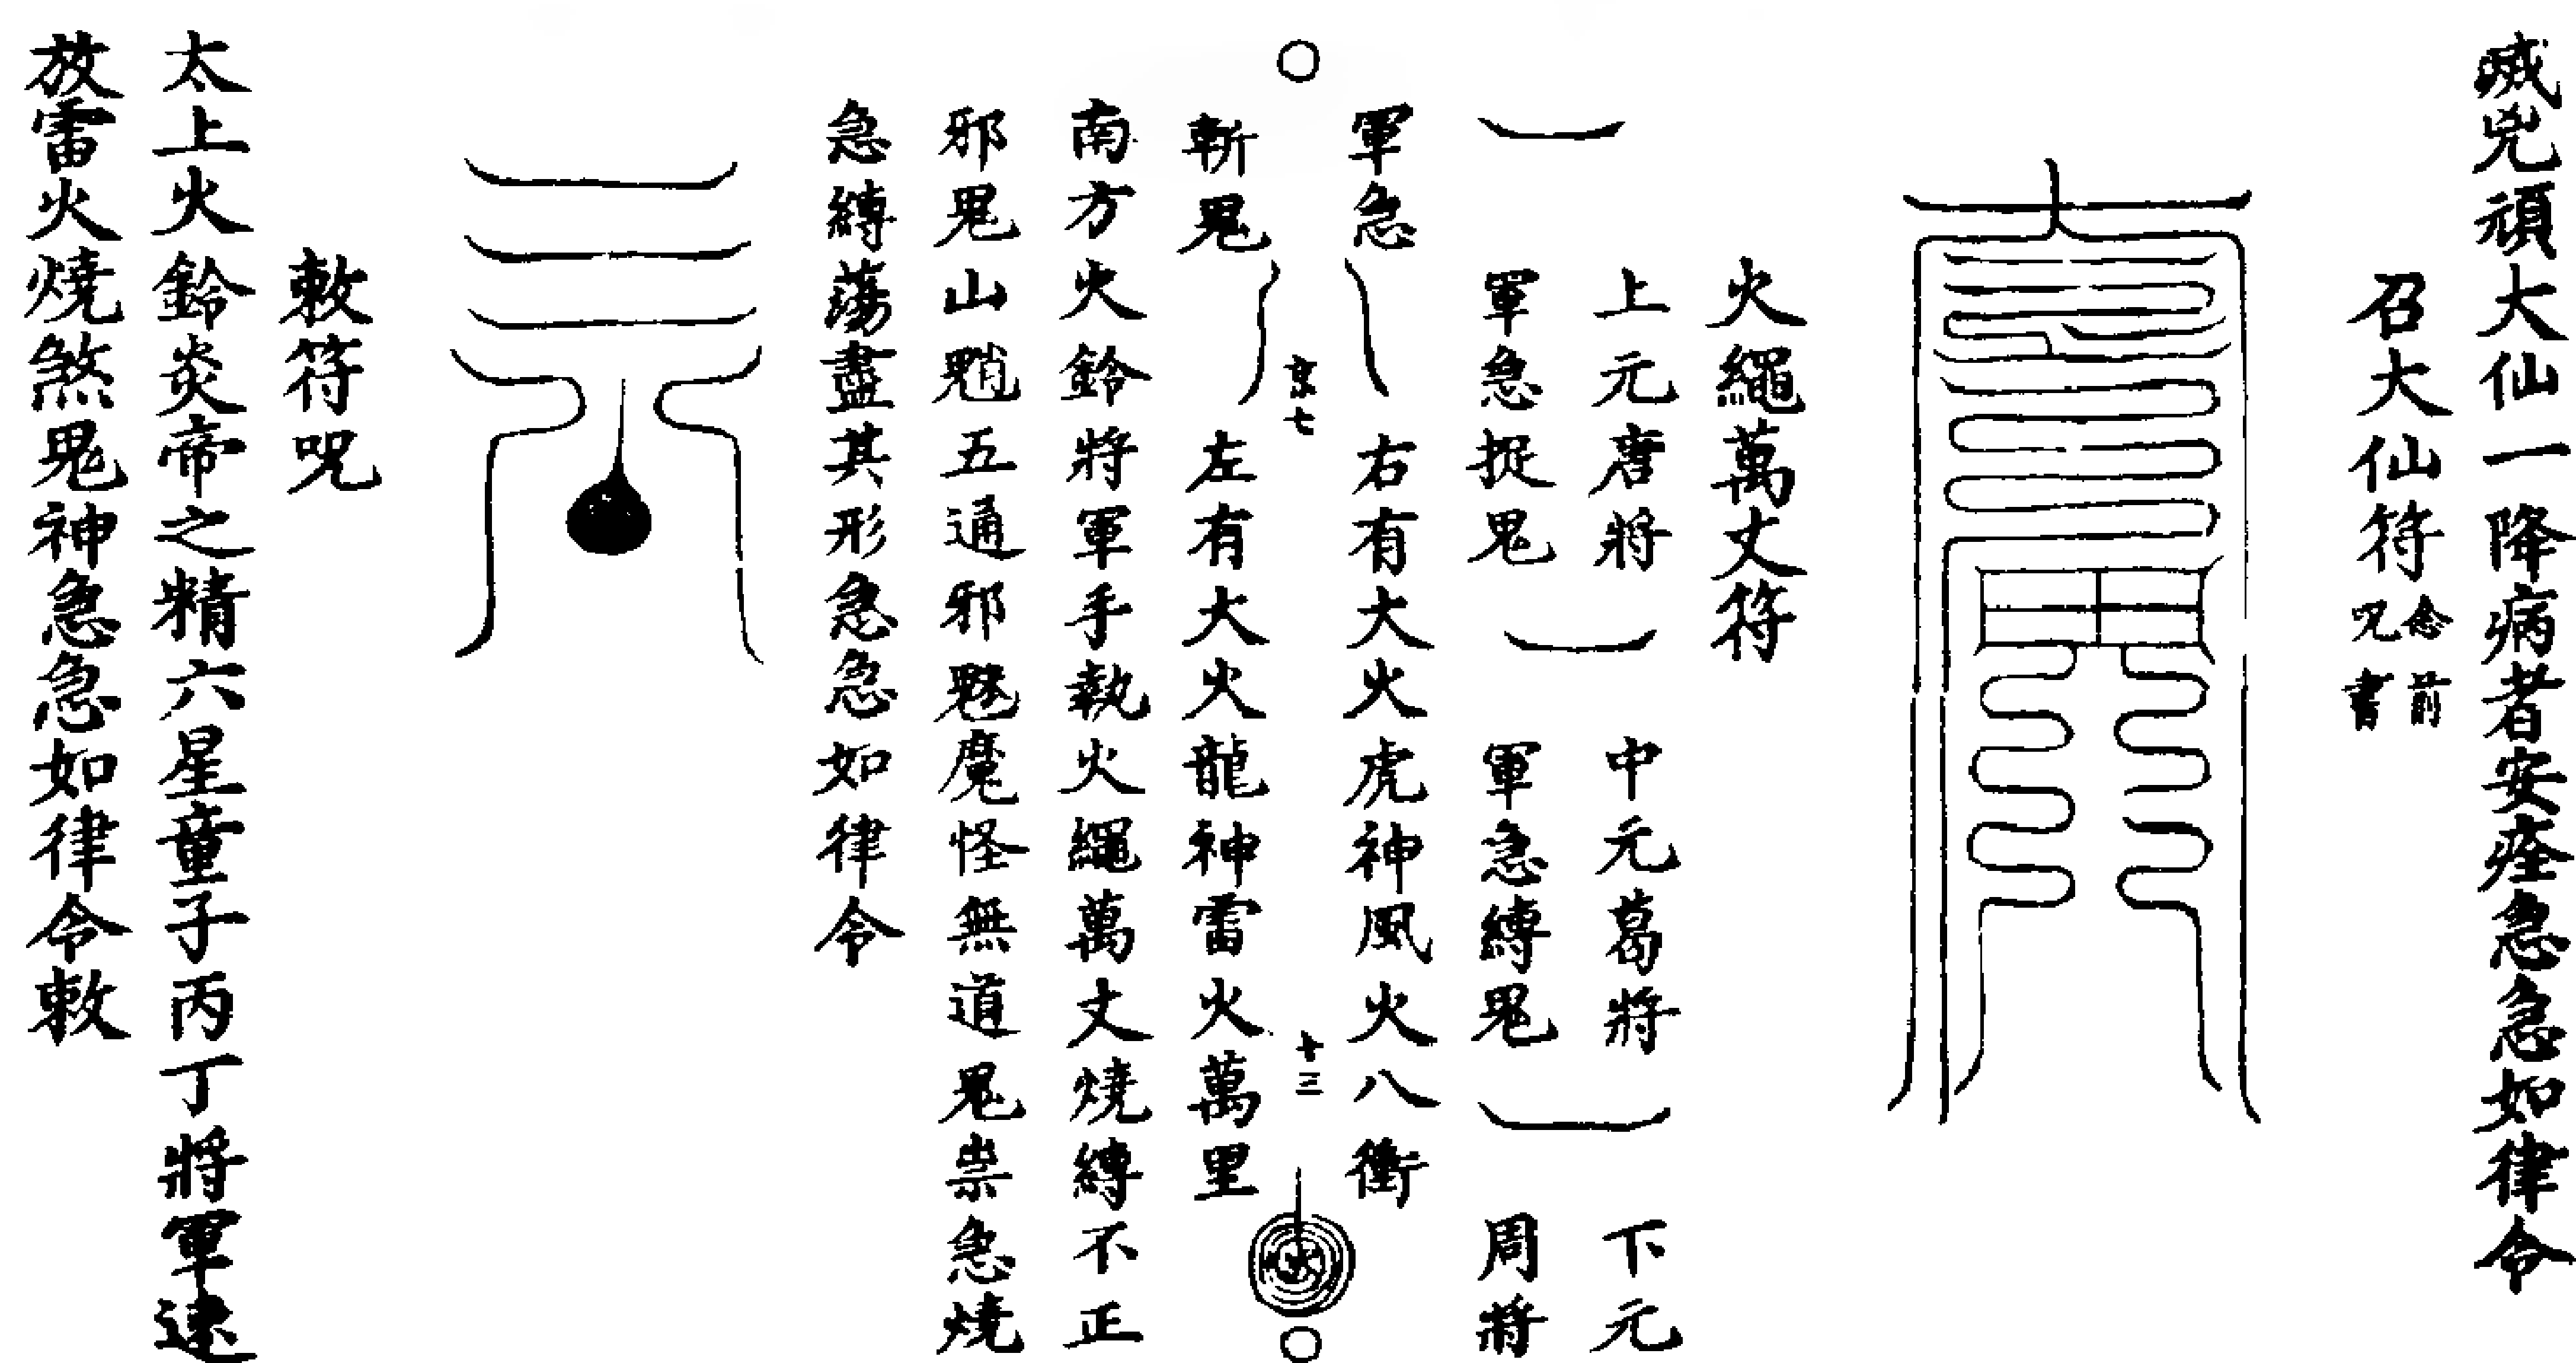 滅兇頑大仙一降病者安痊急急如律令
召大仙符念前呪書
火繩萬丈符
上元唐將 中元葛將 下元
軍急捉鬼 軍急縛鬼 周將
軍急 右有大火虎神風火八衝
京七 十三 火
斬鬼 左有大火龍神雷火萬里
南方火鈴將軍手執火繩萬丈燒縛不正
邪鬼山魈五通邪魅魔怪無道鬼祟急燒
急縛蕩盡其形急急如律令
敕符呪
太上火鈴炎帝之精六星童子丙丁將軍速
放雷火燒煞鬼神急急如律令敕